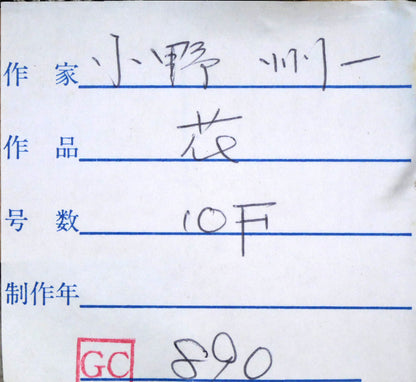 作家 小野 州一
作品 花
号数 10F
制作年
GC 890